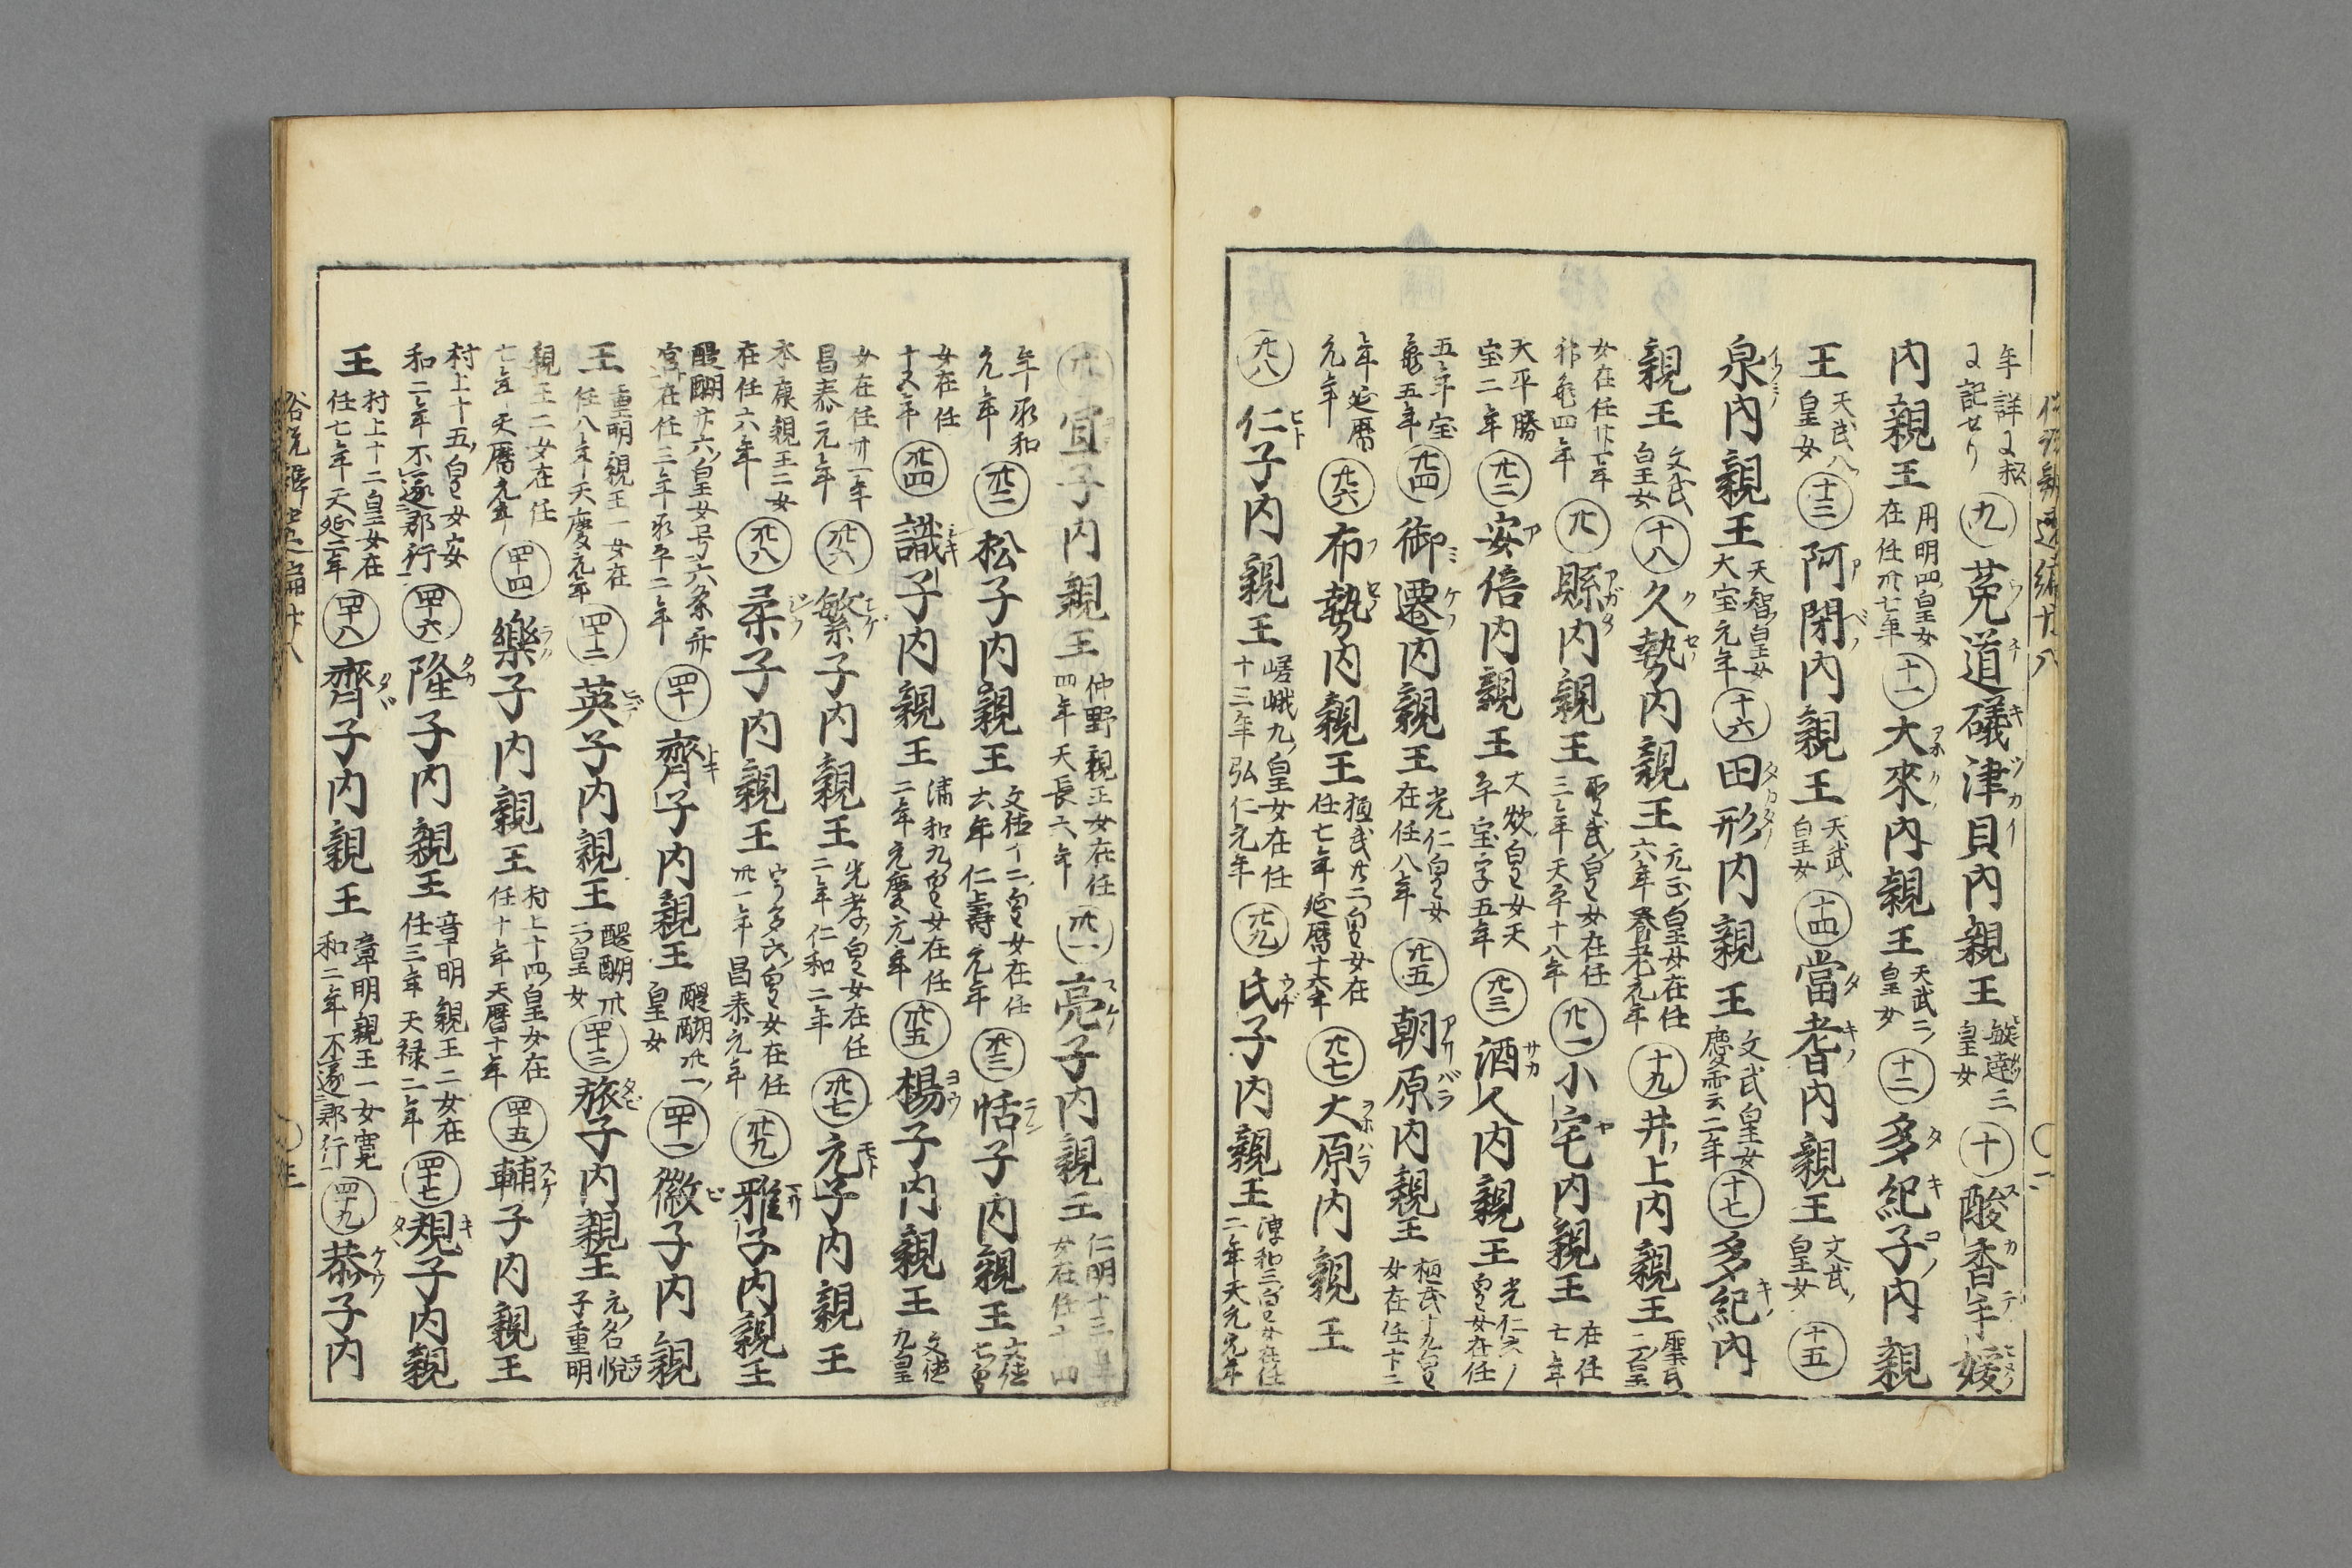 年詳ニ松
ニ記せり
㊈菟道礒津貝内親王 敏達三皇女 ㊉酸香手媛
内親王 用明四皇女在任卅七年 十一 大來内親王 天武二ノ皇女 十二 多紀子内親
王 天武八皇女 十三 阿閇内親王 天武ノ皇女 十四 當耆内親王 文武ノ皇女 十五
泉内親王 天智ノ皇女大宝元年 十六 田形内親王 文武皇女慶雲二年 十七 多紀内
親王 文武皇女 十八 久勢内親王 元正皇女在任六年養老元年 十九 井上内親王 聖武一ノ皇
女在任廿七年神亀四年 廿 縣内親王 聖武皇女在任三年天平十八年 廿一 小宅内親王 在任七年
天平勝宝二年 廿二 安倍内親王 大炊皇女天平宝字五年 廿三 酒人内親王 光仁六ノ皇女在任
五年宝亀五年 廿四 御遷内親王 光仁皇女在任八年 廿五 朝原内親王 桓武十九皇女在任十二
年延暦元年 廿六 布勢内親王 桓武廿二皇女在任七年延暦十六年 廿七 大原内親王
廿八 仁子内親王 嵯峨九皇女在任十三年弘仁元年 廿九 氏子内親王 淳和三皇女在任二年天元元年
卅 宜子内親王 仲野親王女在任四年天長六年 卅一 亮子内親王 仁明十三皇女在任十四
年承和元年 卅二 松子内親王 文徳十二皇女在任六年仁壽元年 卅三 恬子内親王 文徳七皇
女在任十又年 卅四 識子内親王 清和九皇女在任二年元慶元年 卅五 楊子内親王 文徳九皇
女在任卅一年昌泰元年 卅六 繁子内親王 光孝皇女在任二年仁和二年 卅七 元子内親王
本康親王二女在任六年 卅八 柔子内親王 宇多六皇女在任卅一年昌泰元年 卅九 雅子内親王
醍醐廿六皇女号六条斎宮在任三年承平二年 四十 齊子内親王 醍醐卅一ノ皇女 四十一 徽子内親
王 重明親王一女在任八年天慶元年 四十二 英子内親王 醍醐卅二ノ皇女 四十三 旅子内親王 元ノ名悦子重明
親王二女在任七年天暦元年 四十四 樂子内親王 村上十四皇女在任十年天暦十年 四十五 輔子内親王
村上十五皇女安和二年不遂郡行 四十六 隆子内親王 章明親王二女在任三年天禄二年 四十七 規子内親
王 村上十二皇女在任七年天延三年 四十八 齊子内親王 章明親王一女寛和二年不遂郡行 四十九 恭子内